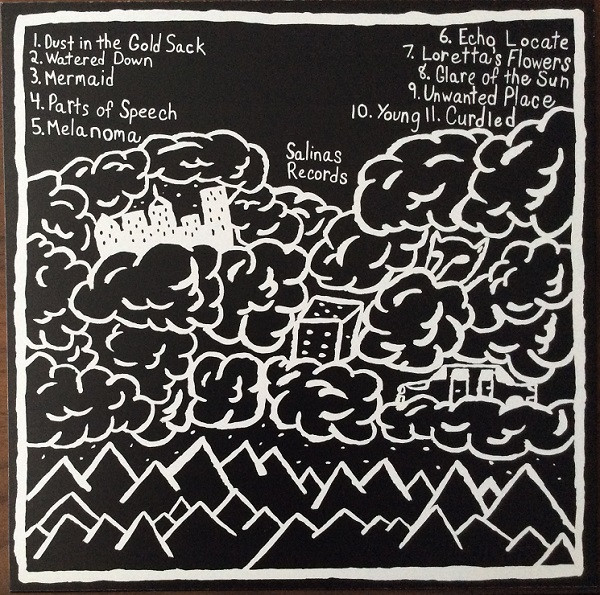 1. Dust in the Gold Sack
2. Watered Down
3. Mermaid
4. Parts of Speech
5. Melanoma
6. Echo Locate
7. Loretta's Flowers
8. Glare of the Sun
9. Unwanted Place
10. Young 11. Curdled
Salinas
Records